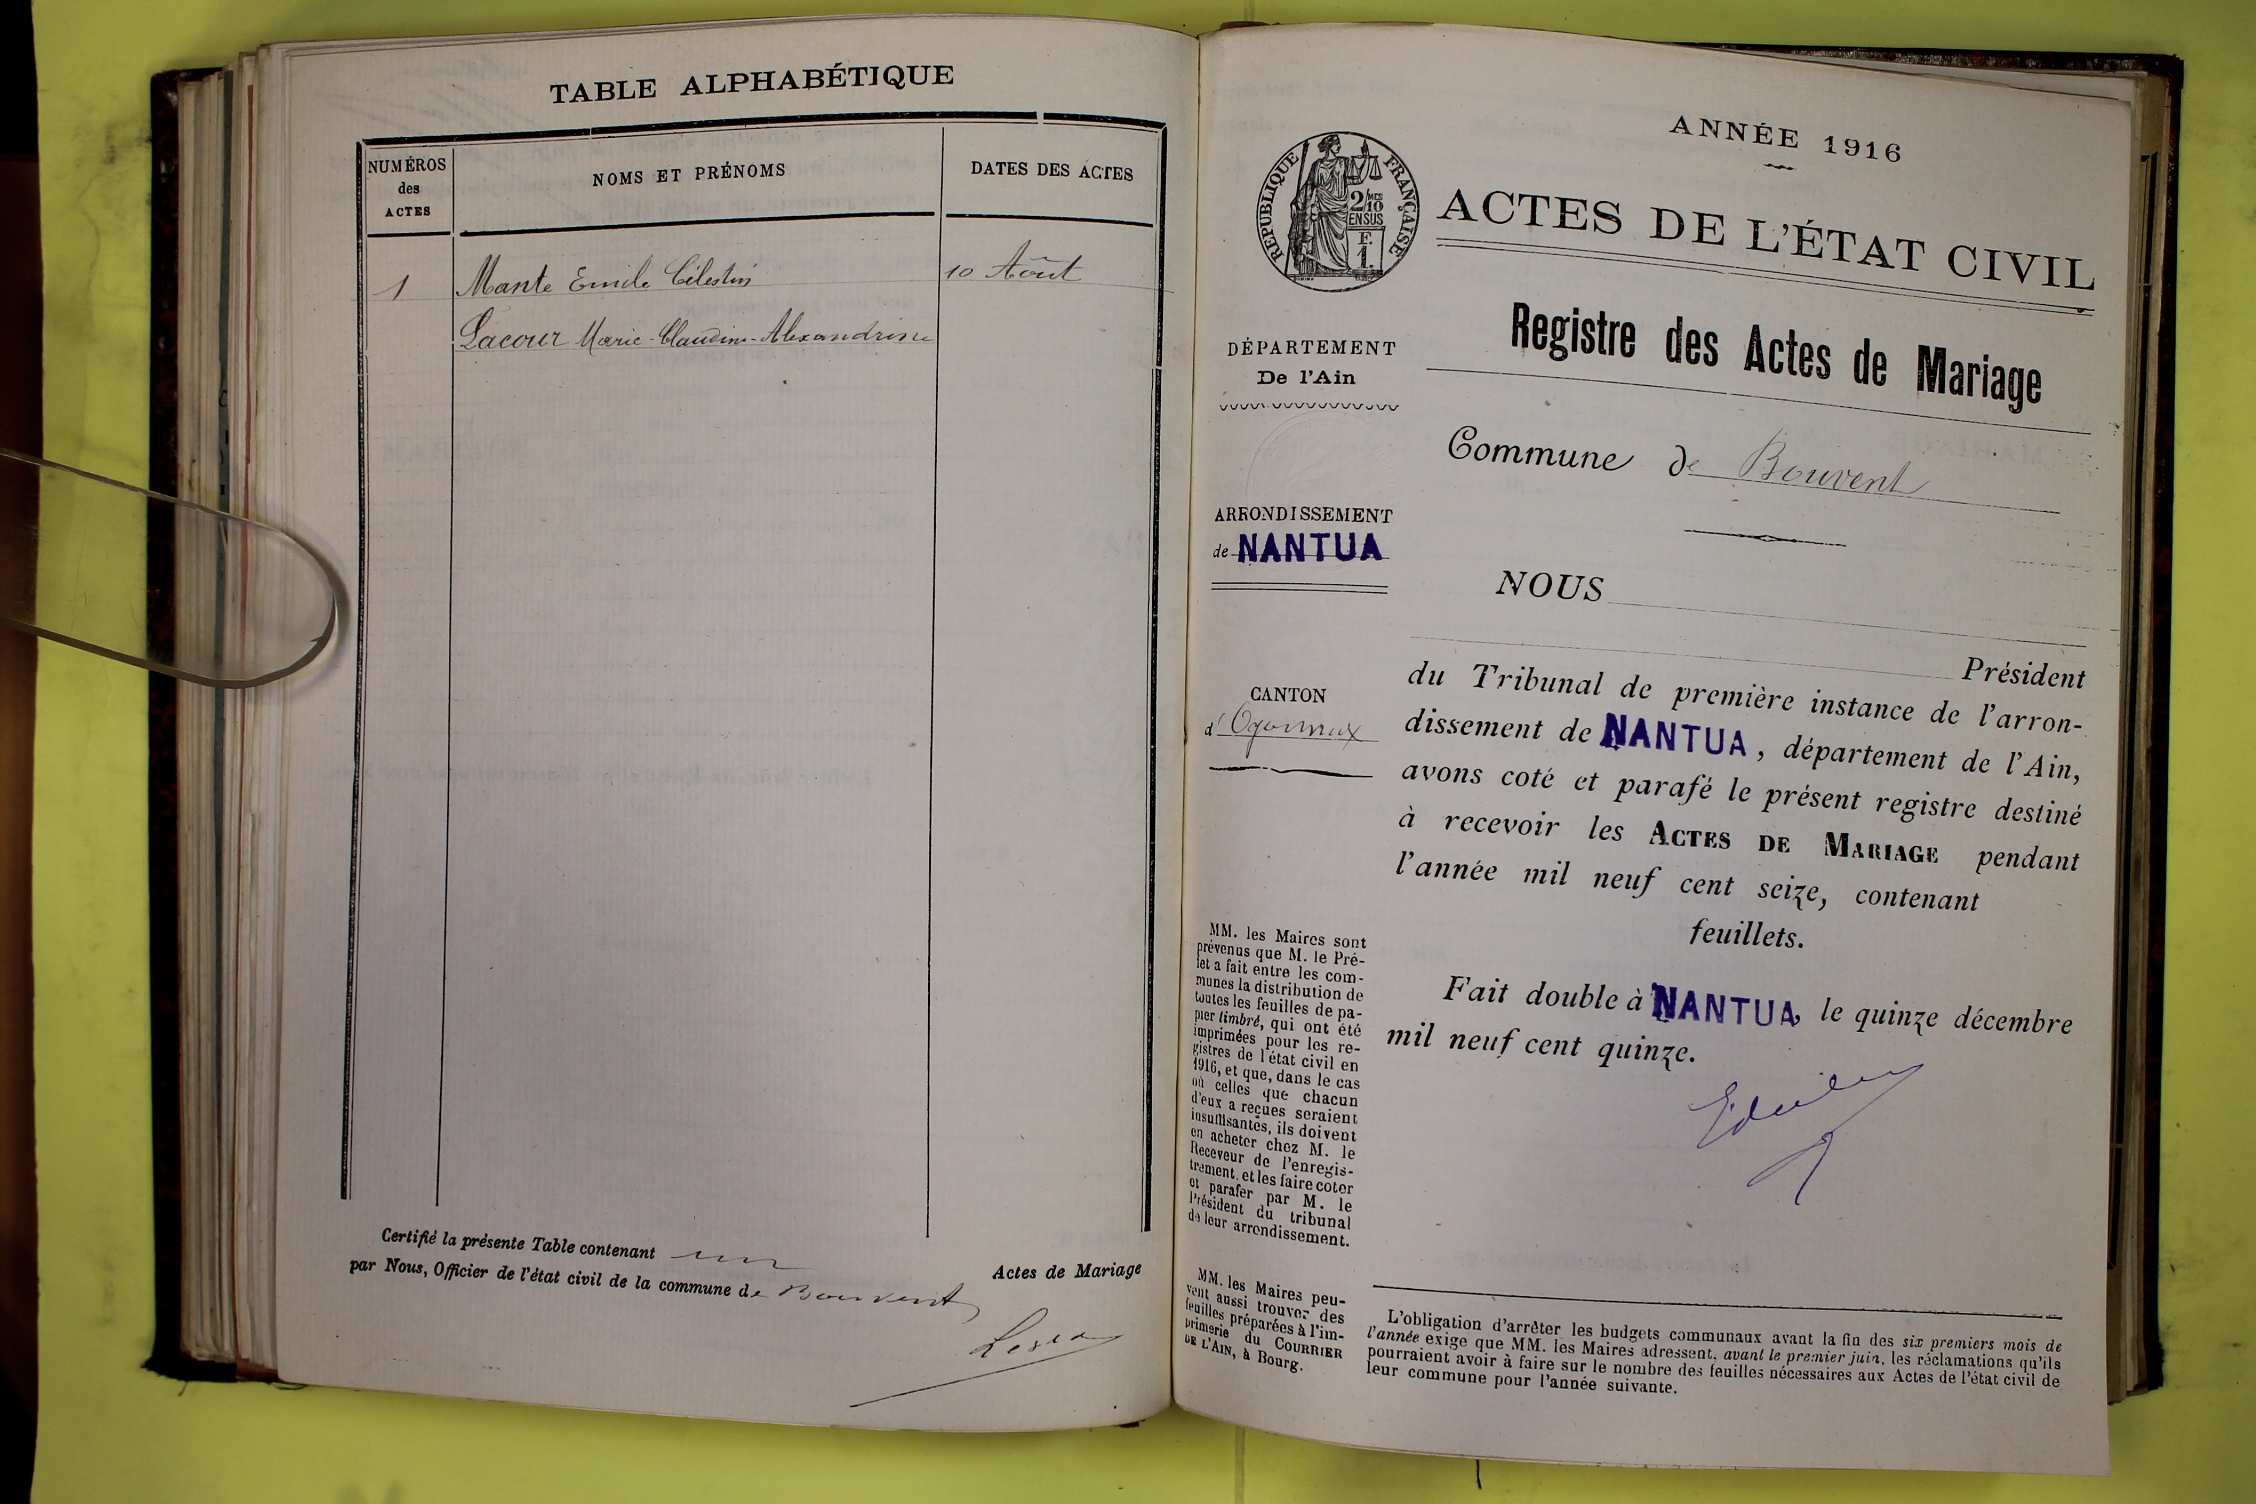 TABLE ALPHABÉTIQUE
NUMÉROS
des
ACTES
NOMS ET PRÉNOMS
DATES DES ACTES
1 Mante Emile Célestin 10 Août
Lacour Marie-Claudine-Alexandrine
Certifié la présente Table contenant un
Actes de Mariage
par Nous, Officier de l'état civil de la commune de Bouvent
ANNÉE 1916
RÉPUBLIQUE FRANÇAISE
2/10 MES
EN SUS
F.
1.
ACTES DE L'ÉTAT CIVIL
Registre des Actes de Mariage
DÉPARTEMENT
De l'Ain
Commune de Bouvent
ARRONDISSEMENT
de NANTUA
NOUS
Président
CANTON
d'Oyonnax
du Tribunal de première instance de l'arron-
dissement de NANTUA, département de l'Ain,
avons coté et parafé le présent registre destiné
à recevoir les ACTES DE MARIAGE pendant
l'année mil neuf cent seize, contenant
feuillets.
Fait double à NANTUA, le quinze décembre
mil neuf cent quinze.
MM. les Maires sont
prévenus que M. le Pré-
fet a fait entre les com-
munes la distribution de
toutes les feuilles de pa-
pier timbré, qui ont été
imprimées pour les re-
gistres de l'état civil en
1916, et que, dans le cas
où celles que chacun
d'eux a reçues seraient
insuffisantes, ils doivent
en acheter chez M. le
Receveur de l'enregis-
trement, et les faire coter
et parafer par M. le
Président du tribunal
de leur arrondissement.
MM. les Maires peu-
vent aussi trouver des
feuilles préparées à l'im-
primerie du COURRIER
DE L'AIN, à Bourg.
L'obligation d'arrêter les budgets communaux avant la fin des six premiers mois de
l'année exige que MM. les Maires adressent, avant le premier juin, les réclamations qu'ils
pourraient avoir à faire sur le nombre des feuilles nécessaires aux Actes de l'état civil de
leur commune pour l'année suivante.